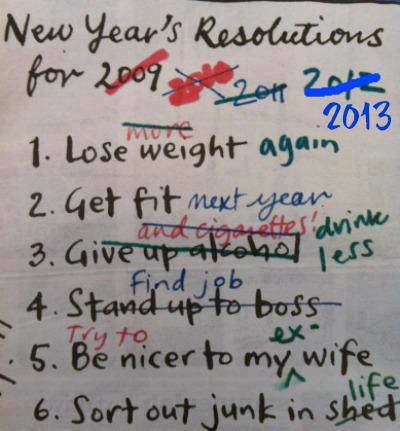 New Year's Resolutions
for 2009 2011 2012
2013
more
1. Lose weight again
2. Get fit next year
and cigarettes! drink
3. Give up alcohol less
Find job
4. Stand up to boss
Try to ex-
5. Be nicer to my wife
life
6. Sort out junk in shed